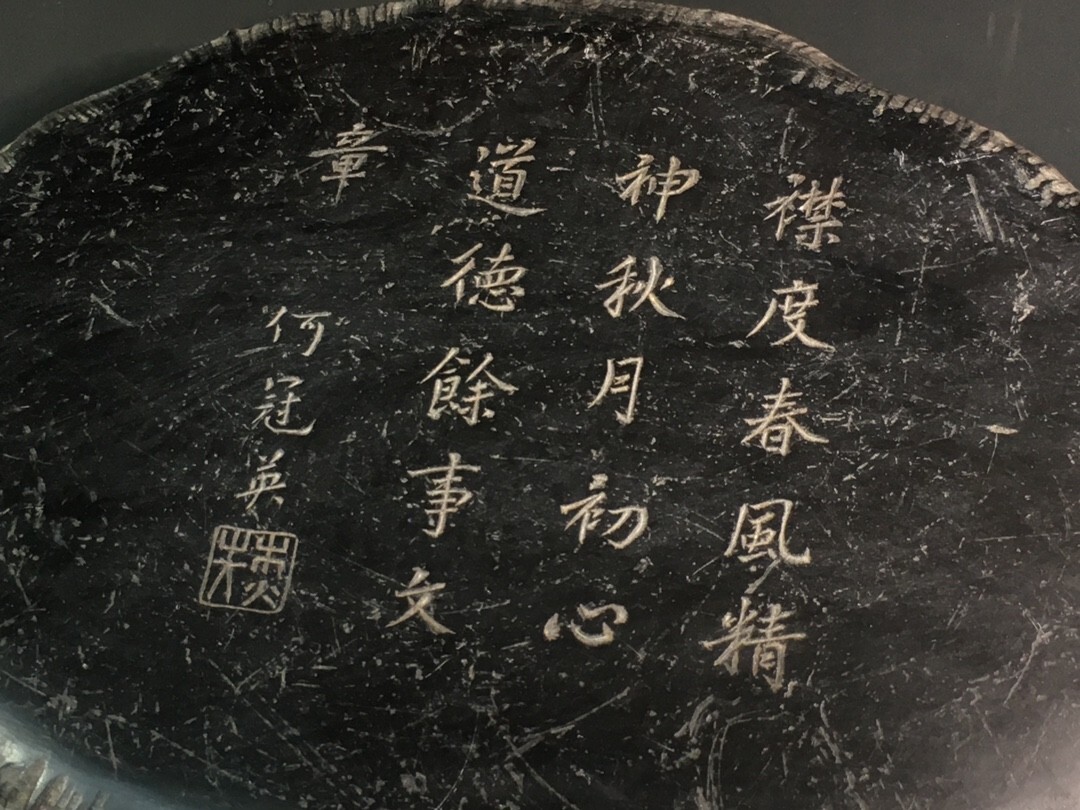 襟度春風精
神秋月初心
道德餘事文
章
何冠英